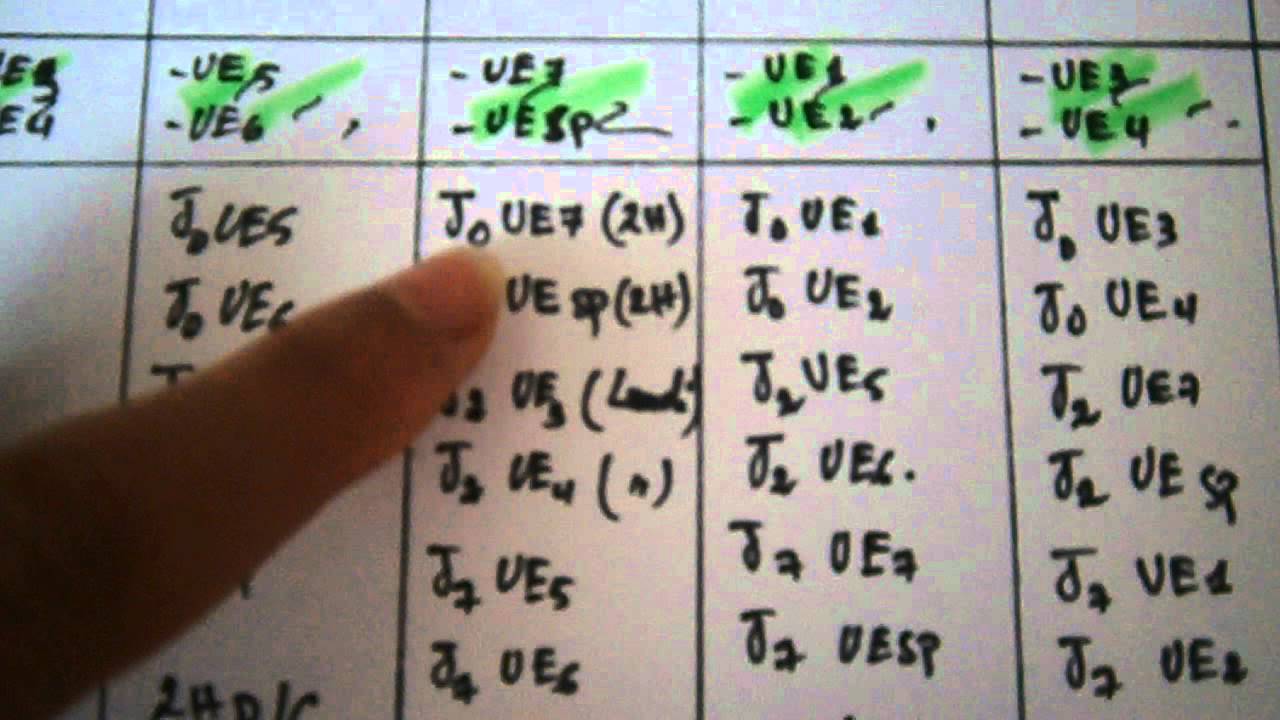 UE3
UE4
-UE5
-UE6
-UE7
-UESp
-UE1
-UE2
-UE3
-UE4
J0 UE5
J0 UE6
J0 UE7 (2H)
UE Sp (2H)
J2 UE3 (Lundi)
J2 UE4 (")
J7 UE5
J7 UE6
J0 UE1
J0 UE2
J2 UE5
J2 UE6.
J7 UE7
J7 UESP
J0 UE3
J0 UE4
J2 UE7
J2 UE Sp
J7 UE1
J7 UE2